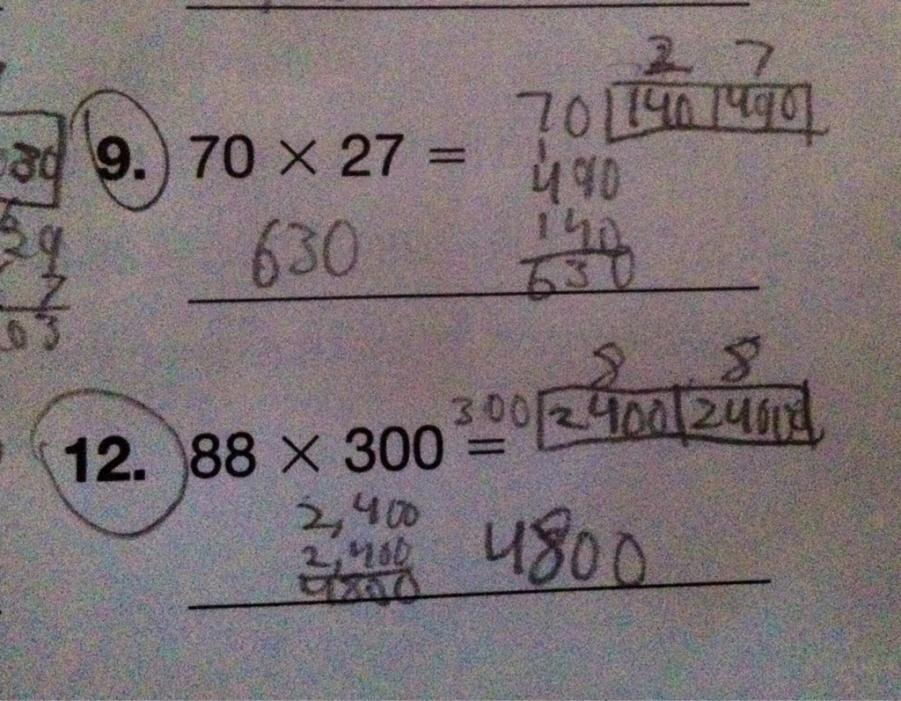 2 7
70 140 490
9. 70 × 27 =
1
490
140
630
630
29
7
63
8 8
300 2400 2400
12. 88 × 300 =
2,400
2,400
4800
4800